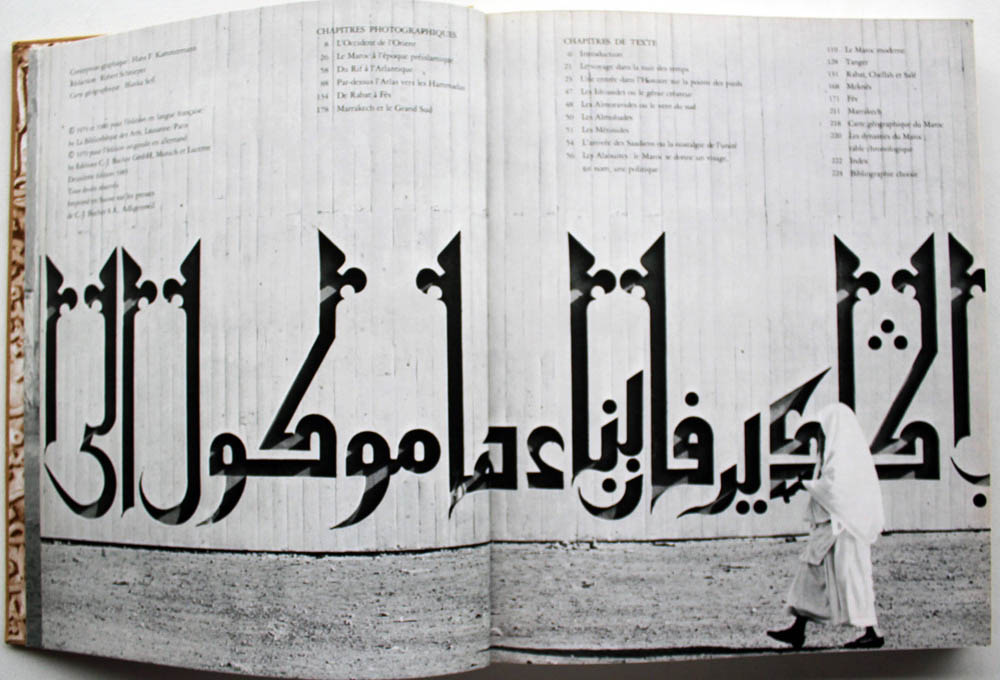 Conception graphique : Hans F. Kammermann
Rédaction : Robert Schnieper
Carte géographique : Blanka Seif
© 1975 et 1980 pour l'édition en langue française:
by La Bibliothèque des Arts, Lausanne-Paris
© pour l'édition originale en allemand
by Éditions C. J. Bucher GmbH, Munich et Lucerne
Deuxième édition
Tous droits réservés
Imprimé en Suisse sur les presses
de C. J. Bucher S.A., Adligenswil
CHAPITRES PHOTOGRAPHIQUES
8 L'Occident de l'Orient
26 Le Maroc à l'époque préislamique
58 Du Rif à l'Atlantique
88 Par-dessus l'Atlas vers les Hammadas
134 De Rabat à Fès
178 Marrakech et le Grand Sud
CHAPITRES DE TEXTE
6 Introduction
21 Le voyage dans la nuit des temps
25 Une entrée dans l'Histoire sur la pointe des pieds
47 Les Idrissides ou le génie créateur
48 Les Almoravides ou le vent du sud
50 Les Almohades
51 Les Mérinides
54 L'arrivée des Saadiens ou la nostalgie de l'unité
56 Les Alaouites : le Maroc se donne un visage,
un nom, une politique
119 Le Maroc moderne
128 Tanger
131 Rabat, Chellah et Salé
168 Meknès
171 Fès
211 Marrakech
218 Carte géographique du Maroc
220 Les dynasties du Maroc :
table chronologique
222 Index
224 Bibliographie choisie
ب اݣادير فان بناءها موكول الى